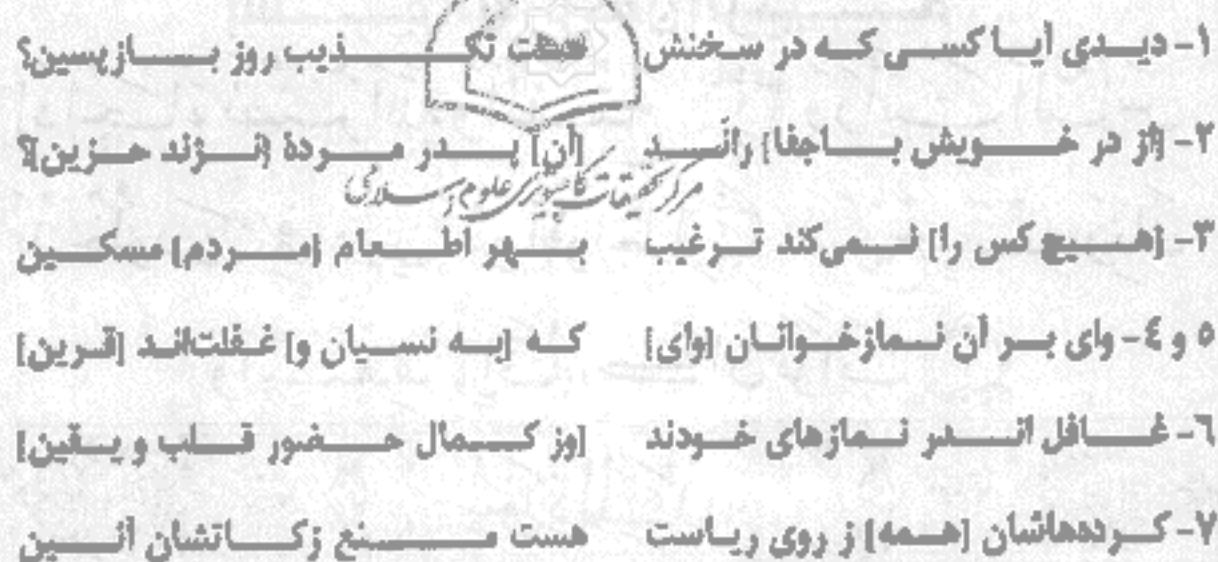 ۱- دیدی آیا کسی که در سخنش هست تکذیب روز بازپسین؟
۲- [از در خویش با جفا] راند [آن] پدر مردهٔ [نژند حزین]؟
مرکز تحقیقات کامپیوتری علوم اسلامی
۳- [هیچ کس را] نمی‌کند ترغیب بهر اطعام [مردم] مسکین
۵ و ٤- وای بر آن نمازخوانان [وای] که [به نسیان و] غفلت‌اند [قرین]
٦- غافل اندر نمازهای خودند [وز کمال حضور قلب و یقین]
۷- کرده‌هاشان [همه] ز روی ریاست هست منع زکاتشان آئین